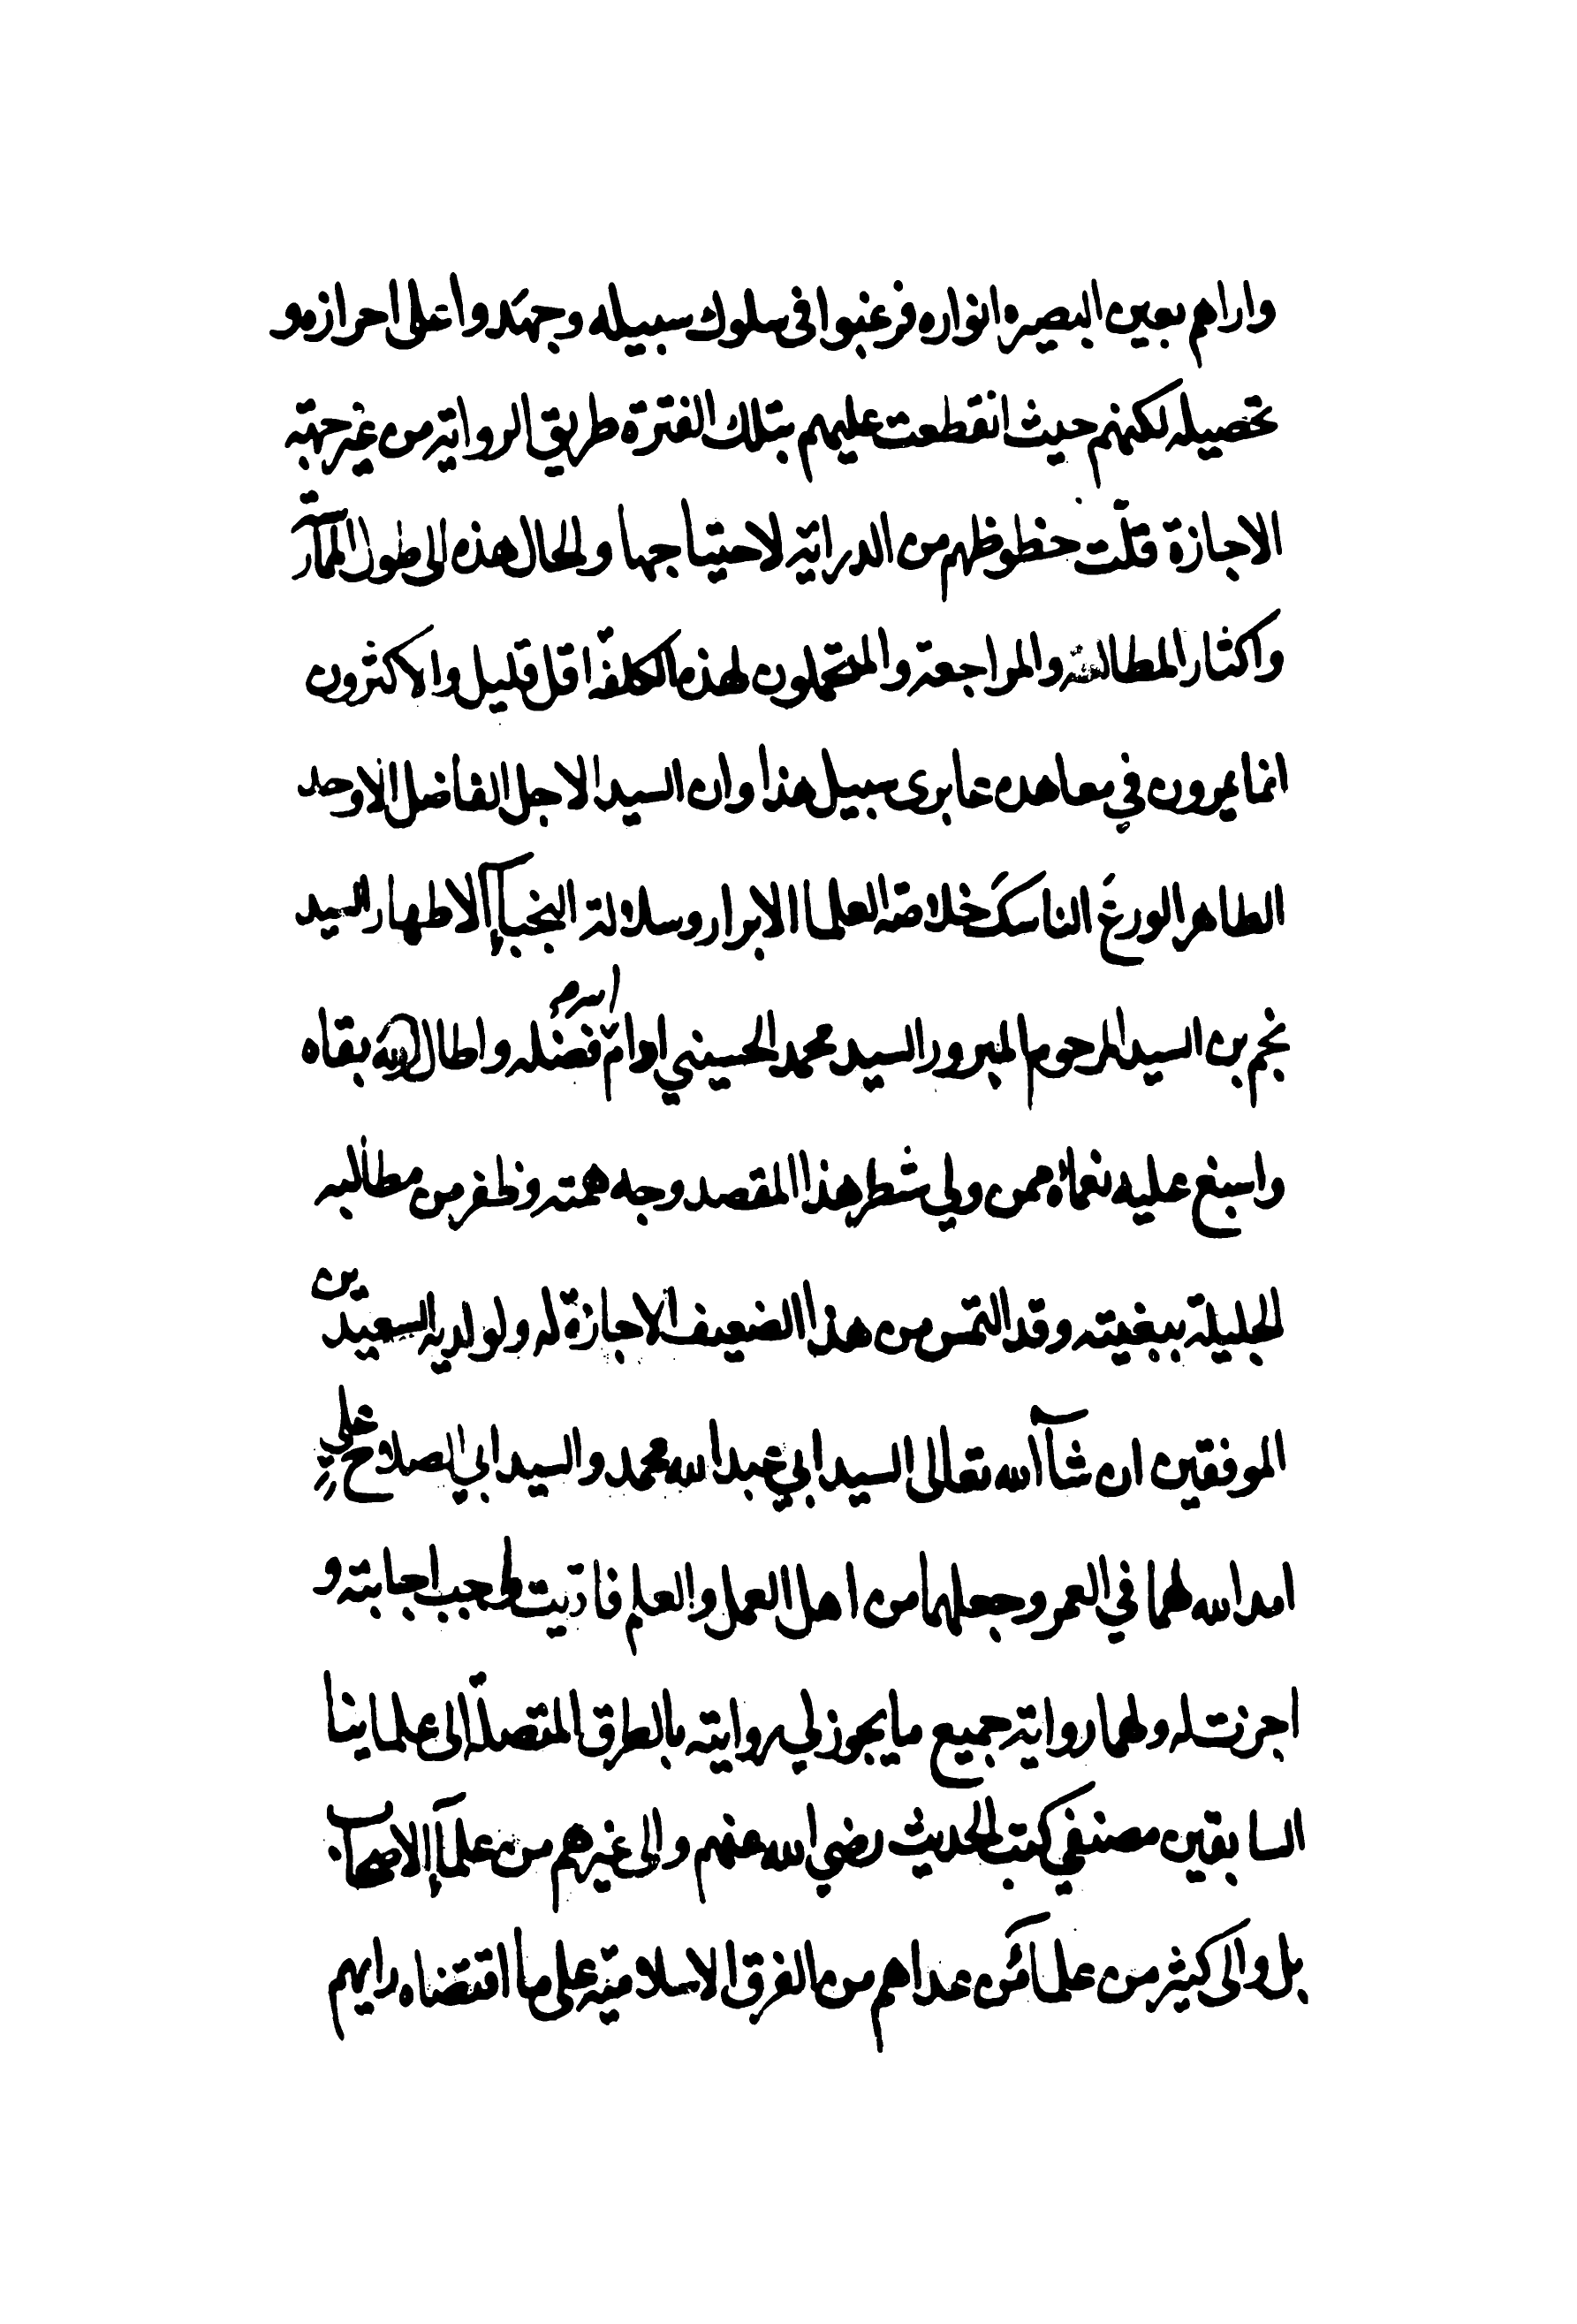 واراهم بعين البصيره انواره فرغبوا في سلوك سبيله وجهدوا على احراز مو
تحصيله لكنهم حيث انقطعت عليهم بتلك الفترة طريق الرواية من غير جهة
الاجازة قلّت حظوظهم من الدراية لاحتياجها والحال هذه الى طول الممارّ
واكثار المطالعة والمراجعة والمتحملون لهذه الكلفة اقل قليل والاكثرون
انما يمرون في معاهده عابرى سبيل هذا وان السيد الاجل الفاضل الاوحد
الطاهر الورع الناسك خلاصة العلما الابرار وسلالة النجبآء الاطهار السيد
نجم بن السيد المرحوم المبرور السيد محمد الحسيني ادام الله فضله واطال الله بقاه
واسبغ عليه نعماه ممن ولي شطر هذا المقصد وجه همته وظفر من مطالبه
الجليلة ببغيته وقد التمس من هذا الضعيف الاجازة له ولولديه السعيدين
الموفقين ان شآ الله تعالى السيد ابي عبد الله محمد والسيد ابي الصلاح علي
امد الله لهما في العمر وجعلهما من اهل العمل والعلم فاجابته و
اجزت له ولهما رواية جميع ما يجوز لي روايته بالطرق المتصلة الى علماينا
السابقين مصنفي كتب الحديث رضي الله عنهم والى غيرهم من علمآء الاصحاب
بل والى كثير من علمآء من عداهم من الفرق الاسلامية على ما اقتضاه رايهم